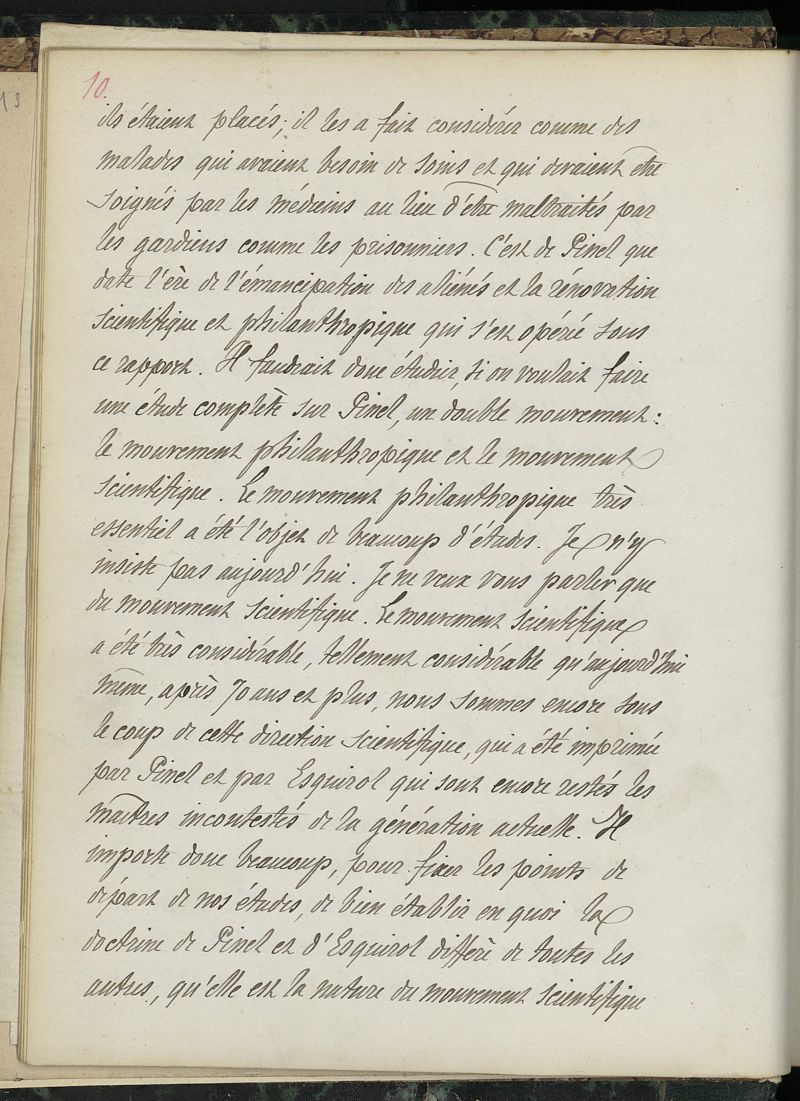 10.
ils étaient placés; il les a fait considérer comme des
malades qui avaient besoin de soins et qui devaient être
soignés par les médecins au lieu d'être maltraités par
les gardiens comme les prisonniers. C'est de Pinel que
date l'ère de l'émancipation des aliénés et la rénovation
scientifique et philanthropique qui s'est opérée sous
ce rapport. Il faudrait donc étudier, si on voulait faire
une étude complète sur Pinel, un double mouvement:
le mouvement philanthropique et le mouvement
scientifique. Le mouvement philanthropique très
essentiel a été l'objet de beaucoup d'études. Je n'y
insiste pas aujourd'hui. Je ne veux vous parler que
du mouvement scientifique. Le mouvement scientifique
a été très considérable, tellement considérable qu'aujourd'hui
même, après 70 ans et plus, nous sommes encore sous
le coup de cette direction scientifique, qui a été imprimée
par Pinel et par Esquirol qui sont encore restés les
maîtres incontestés de la génération actuelle. Il
importe donc beaucoup, pour fixer les points de
départ de nos études, de bien établir en quoi la
doctrine de Pinel et d'Esquirol diffère de toutes les
autres, qu'elle est la nature du mouvement scientifique